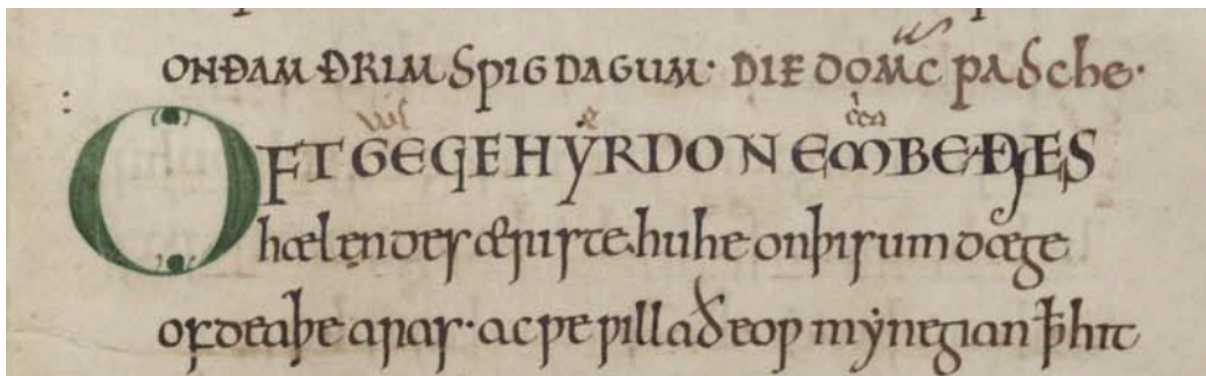 ONÐAM ÐRIM SǷIGDAGUM· DIE DOMC PASCHE·
OFT GE GEHẎRDON EMBE ÐÆS
hælendes æriste. hu he on þisum dæge
of deaþe aras· ac ƿe ƿillað eoƿ mẏnegian ꝥ hit